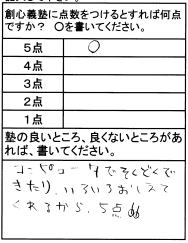 創心義塾に点数をつけるとすれば何点
ですか? ○を書いてください。
5点 ○
4点
3点
2点
1点
塾の良いところ、良くないところがあ
れば、書いてください。
コンピュータでそくどくで
きたり、いろいろおしえて
くれるから、5点